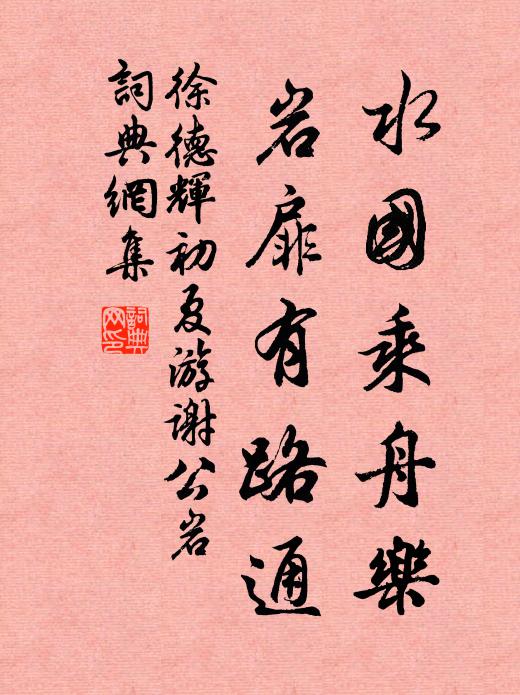 水國乘舟樂
岩扉有路通
徐德輝初夏游谢公岩
詞典網集
詞典
网印